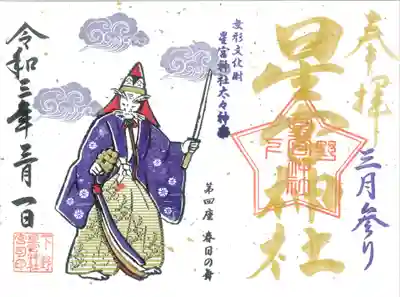 奉拝
三月参り
星宮神社
下野
星宮神社
無形文化財
星宮神社太々神楽
第四座 春日の舞
令和三年三月一日